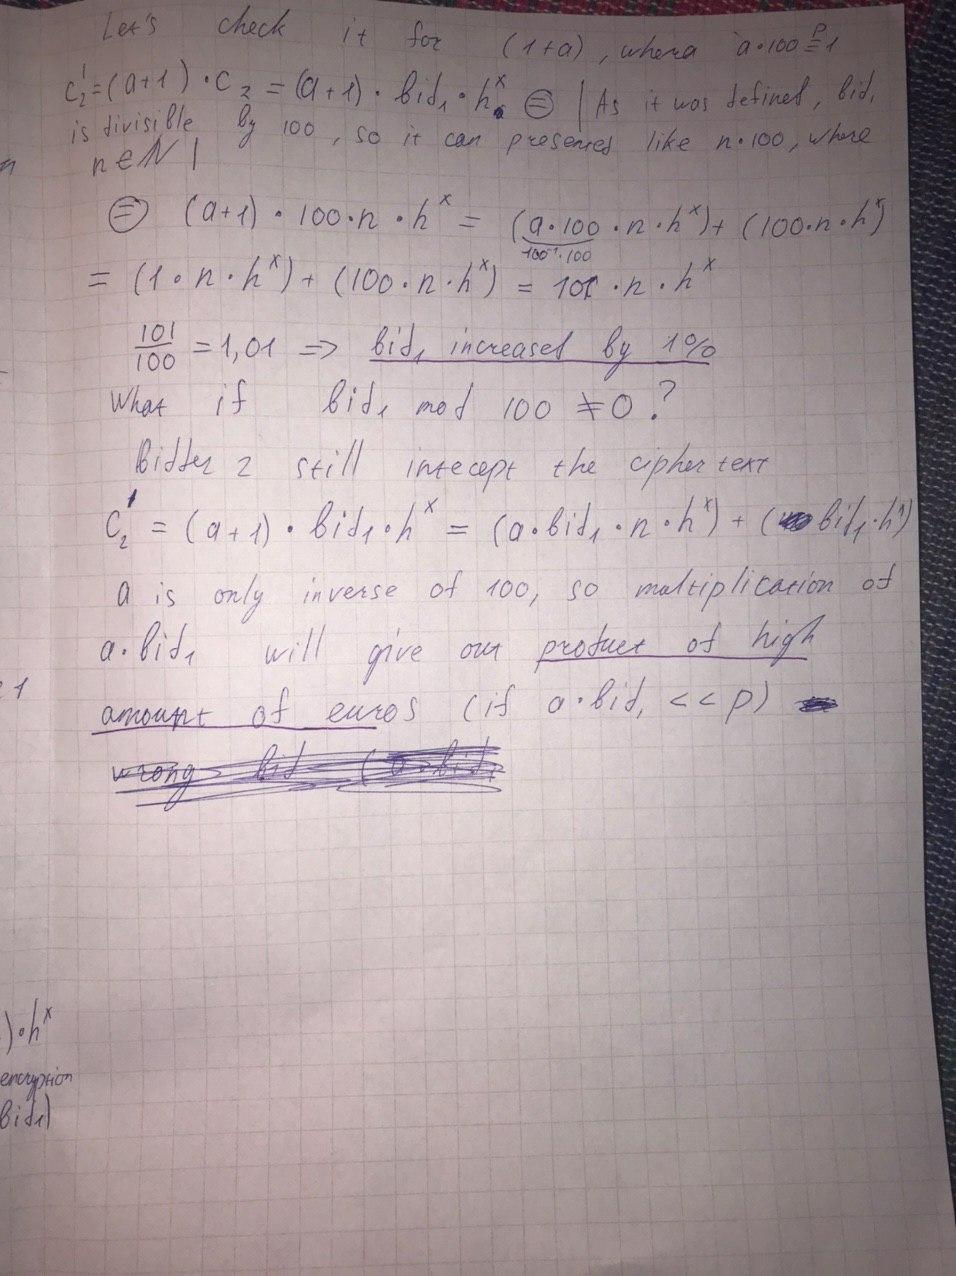 Let's check it for (1+a), where a·100 ≡ᵖ 1
C₂' = (a+1)·C₂ = (a+1)·bid₁·hˣ ⊜ | As it was defined, bid₁
is divisible by 100, so it can presented like n·100, where
n∈N |
⊜ (a+1)·100·n·hˣ = (a·100·n·hˣ) + (100·n·hˣ)
100⁻¹·100
= (1·n·hˣ) + (100·n·hˣ) = 101·n·hˣ
101/100 = 1,01 => bid₁ increased by 1%
What if bid₁ mod 100 ≠ 0?
Bidder 2 still intecept the cipher text
C₂' = (a+1)·bid₁·hˣ = (a·bid₁·n·hˣ) + (bid₁·hˣ)
a is only inverse of 100, so multiplication of
a·bid₁ will give out product of high
amount of euros (if a·bid₁ << p)
1
)·hˣ
encryption
bid₁)